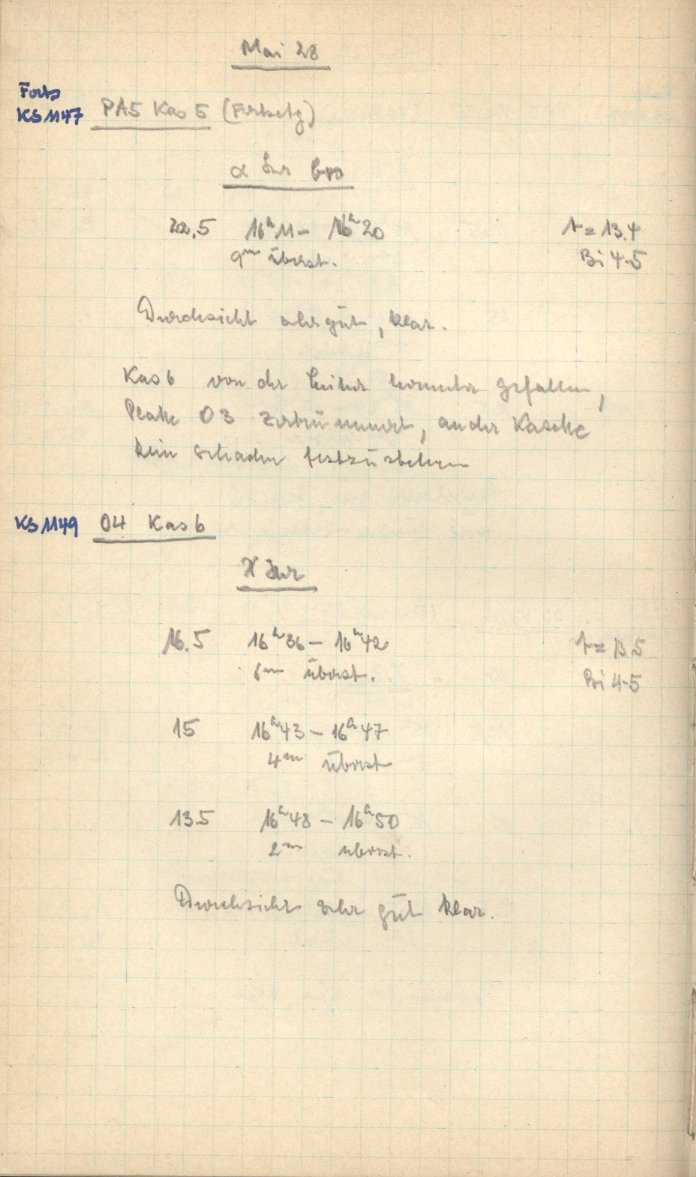 Mai 28
Forts
KS 1147 PA5 Kas 5 (Fortsetzg)
α
22,5 16ʰ11 – 16ʰ20 t = 13.4
9ᵐ überst. Bi 4-5
Durchsicht sehr gut, klar.
Kas 6 von der Leiter herunter gefallen,
Platte 03 zertrümmert, an der Kasette
kein Schaden festzustellen
KS 1149 04 Kas 6
16.5 16ʰ36 – 16ʰ42 t = 13.5
6ᵐ überst. Bi 4-5
15 16ʰ43 – 16ʰ47
4ᵐ überst
13.5 16ʰ48 – 16ʰ50
2ᵐ überst.
Durchsicht sehr gut klar.